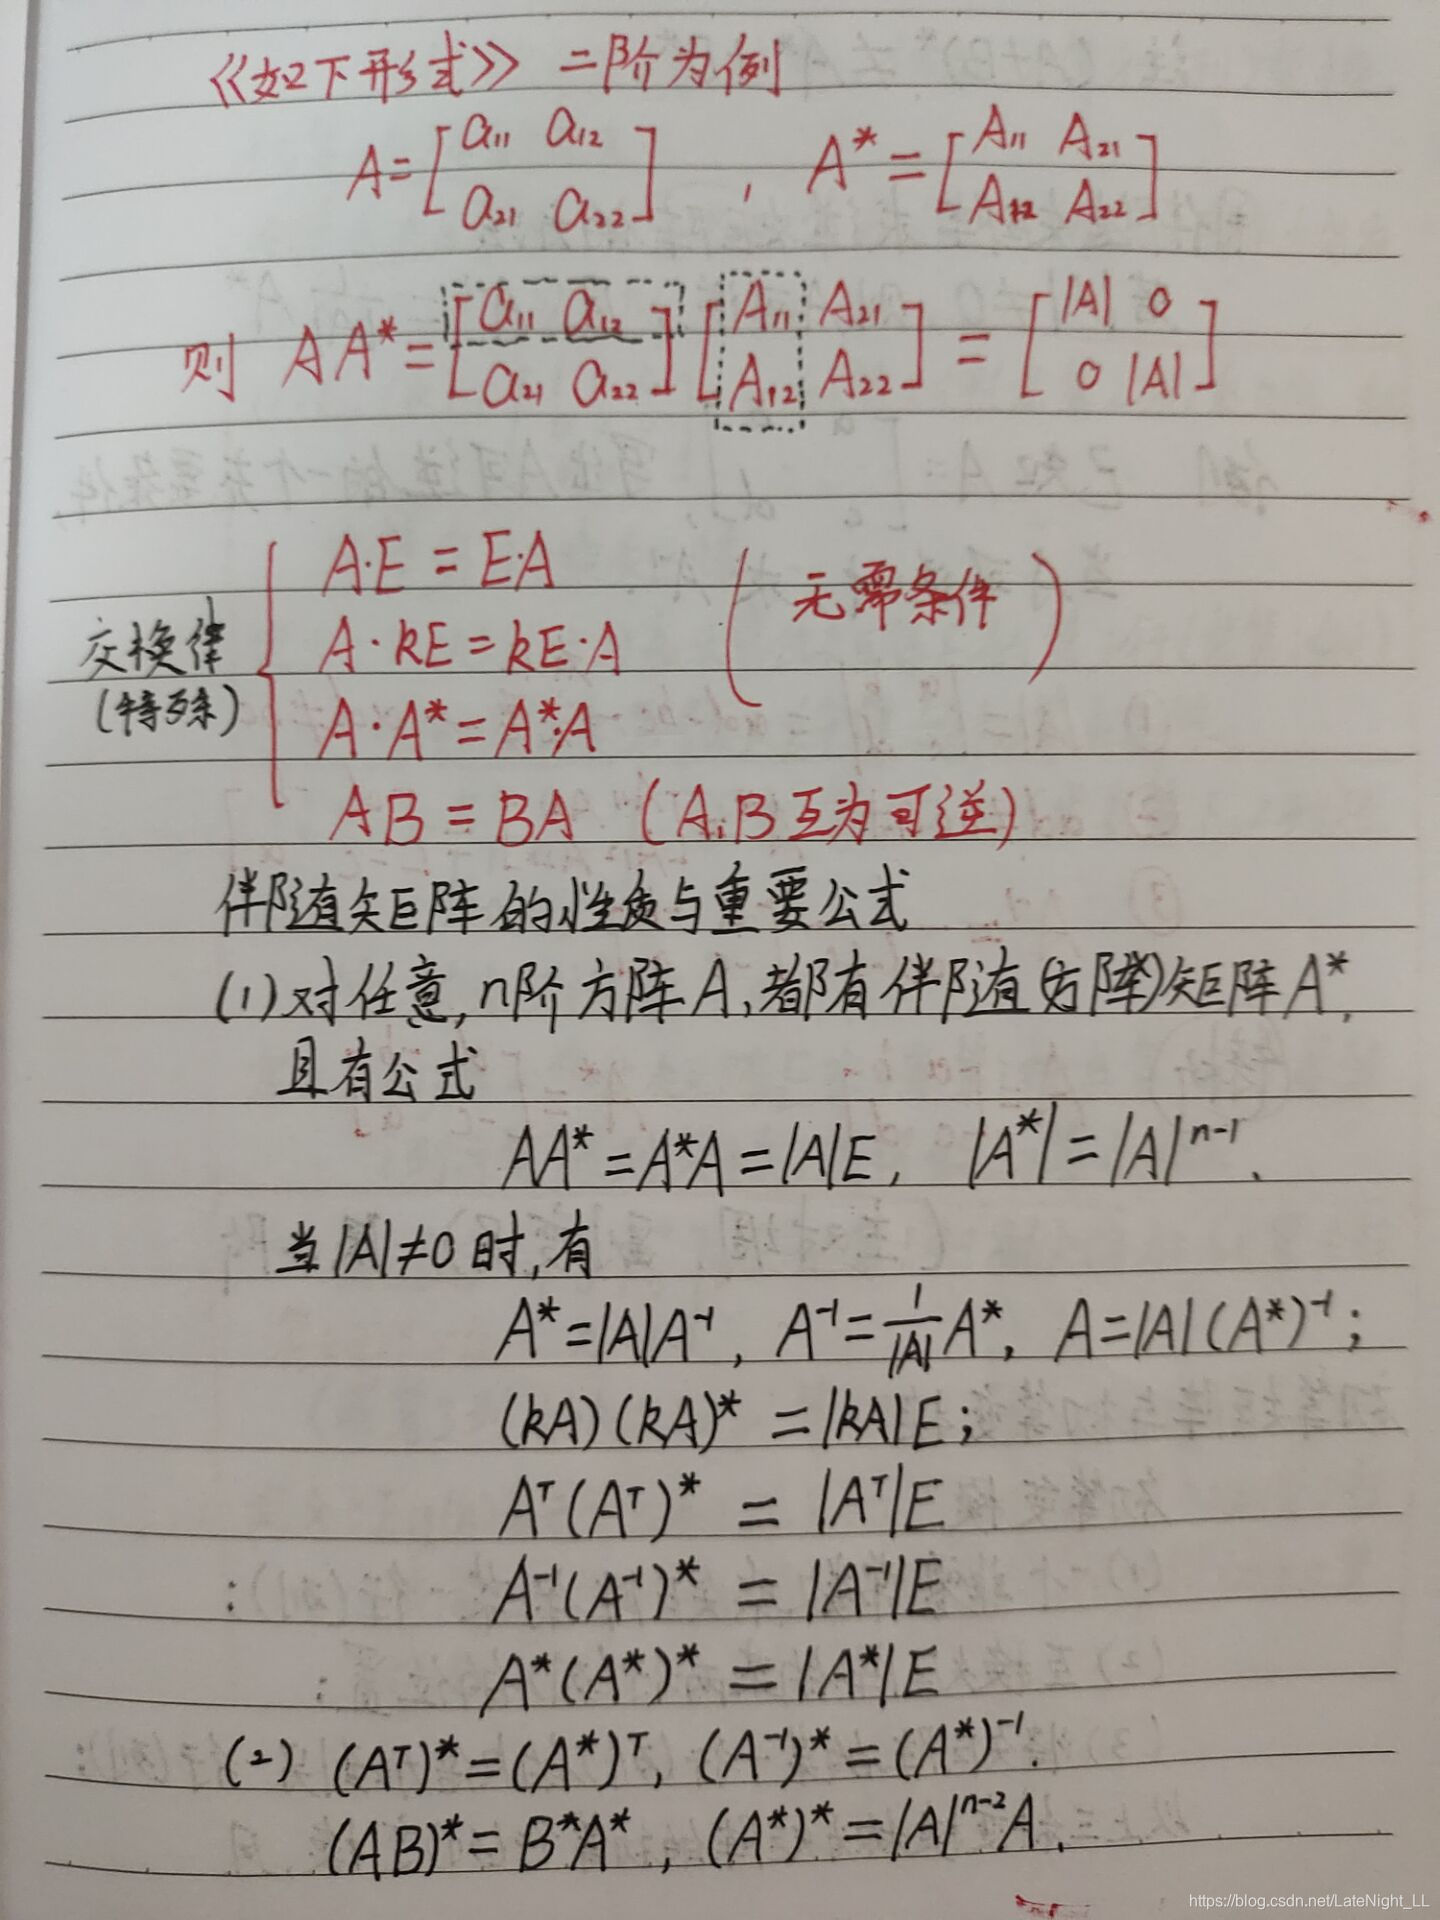 《如下形式》 二阶为例
A=[a₁₁ a₁₂ a₂₁ a₂₂] , A*=[A₁₁ A₂₁ A₁₂ A₂₂]
则 AA*=[a₁₁ a₁₂ a₂₁ a₂₂][A₁₁ A₂₁ A₁₂ A₂₂]=[|A| 0 0 |A|]
交换律
(特殊)
A·E=E·A
A·kE=kE·A
(无需条件)
A·A*=A*·A
AB=BA (A,B互为可逆)
伴随矩阵的性质与重要公式
(1)对任意,n阶方阵A,都有伴随(方阵)矩阵A*,
且有公式
AA*=A*A=|A|E, |A*|=|A|ⁿ⁻¹.
当|A|≠0时,有
A*=|A|A⁻¹, A⁻¹=1/|A| A*, A=|A|(A*)⁻¹;
(kA)(kA)*=|kA|E;
Aᵀ(Aᵀ)*=|Aᵀ|E
A⁻¹(A⁻¹)*=|A⁻¹|E
A*(A*)*=|A*|E
(2) (Aᵀ)*=(A*)ᵀ, (A⁻¹)*=(A*)⁻¹.
(AB)*=B*A*, (A*)*=|A|ⁿ⁻²A.
https://blog.csdn.net/LateNight_LL